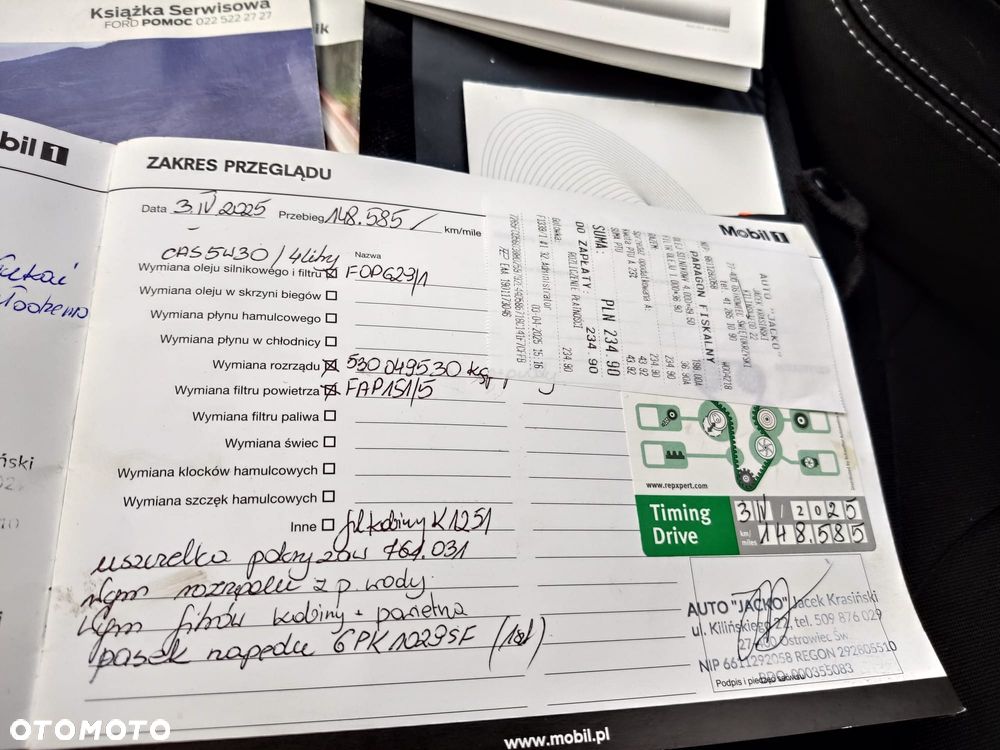 Książka Serwisowa
FORD POMOC 022 522 27 27
ik
bil 1
ZAKRES PRZEGLĄDU
Data 3.IV 2025 Przebieg 148.585/ km/mile
CAS 5W30 / 4 litry Nazwa
Wymiana oleju silnikowego i filtru FOPG29/1
Wymiana oleju w skrzyni biegów
Wymiana płynu hamulcowego
Wymiana płynu w chłodnicy
Wymiana rozrządu 530049530
Wymiana filtru powietrza FAP151/5
Wymiana filtru paliwa
Wymiana świec
Wymiana klocków hamulcowych
Wymiana szczęk hamulcowych
Inne fil kabiny K1251
uszczelka pokr zaw 764.031
Wym rozrządu z p. wody
Wym filtrów kabiny + powietrza
pasek napędu 6PK1029SF (1szt)
Mobil 1
AUTO "JACKO"
JACEK KRASIŃSKI
PARAGON FISKALNY
SUMA: PLN 234.90
DO ZAPŁATY: 234.90
ROZLICZENIE PŁATNOŚCI
234.90
#1 #2 Administrator
03-04-2025 15:16
www.repxpert.com
Timing
Drive
3 IV / 2025
km/
miles
148.585
AUTO "JACKO" Jacek Krasiński
ul. Kilińskiego 22, tel. 509 876 029
27-400 Ostrowiec Św.
NIP 6611292058 REGON 292605510
BDO 000355083
Podpis i
www.mobil.pl
OTOMOTO